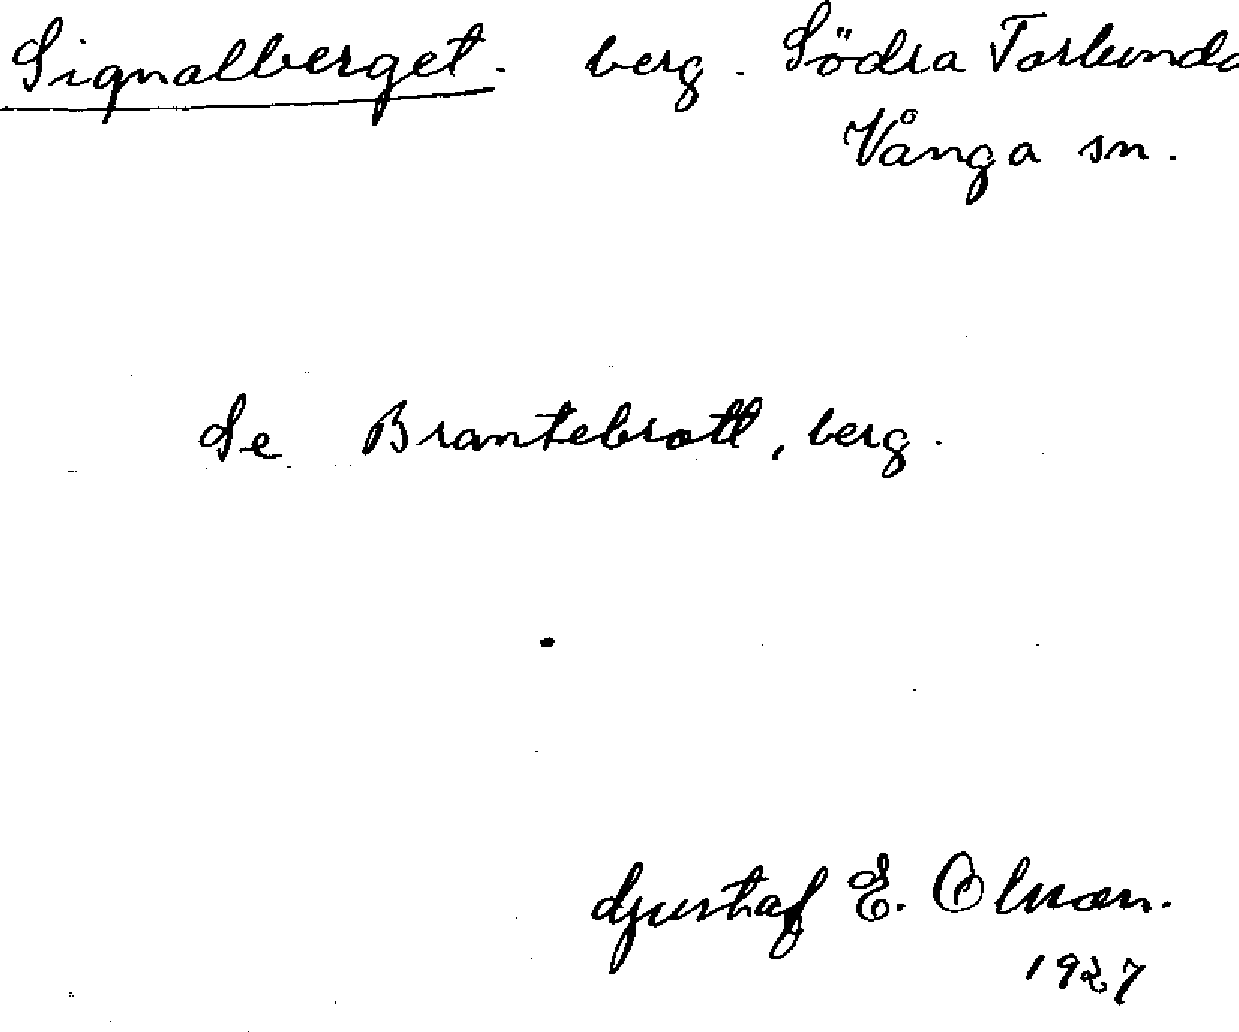 Signalberget. berg. Södra Torlunda
Vånga sn.
Se Brantebrott, berg.
Gustaf E. Olsson.
1927